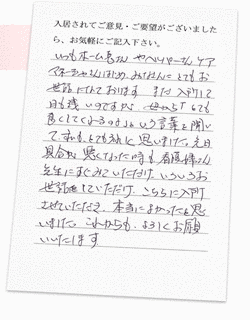 入居されてご意見・ご要望がございました
ら、お気軽にご記入下さい。
いつもホーム長さん やヘルパーさん ケア
マネージャさんはじめ、みなさんにとてもお
世話になっております まだ入所して
日も浅いのですが 母から「とても
良くしてくれるのよ」という言葉を聞い
て、とても
具合が悪くなった時も看護婦さん
先生にすぐみていただけ、いろいろお
世話をしていただけ、こちらに入所
させていただき、本当によかったと思い
ました。これからも、よろしくお願
いいたします